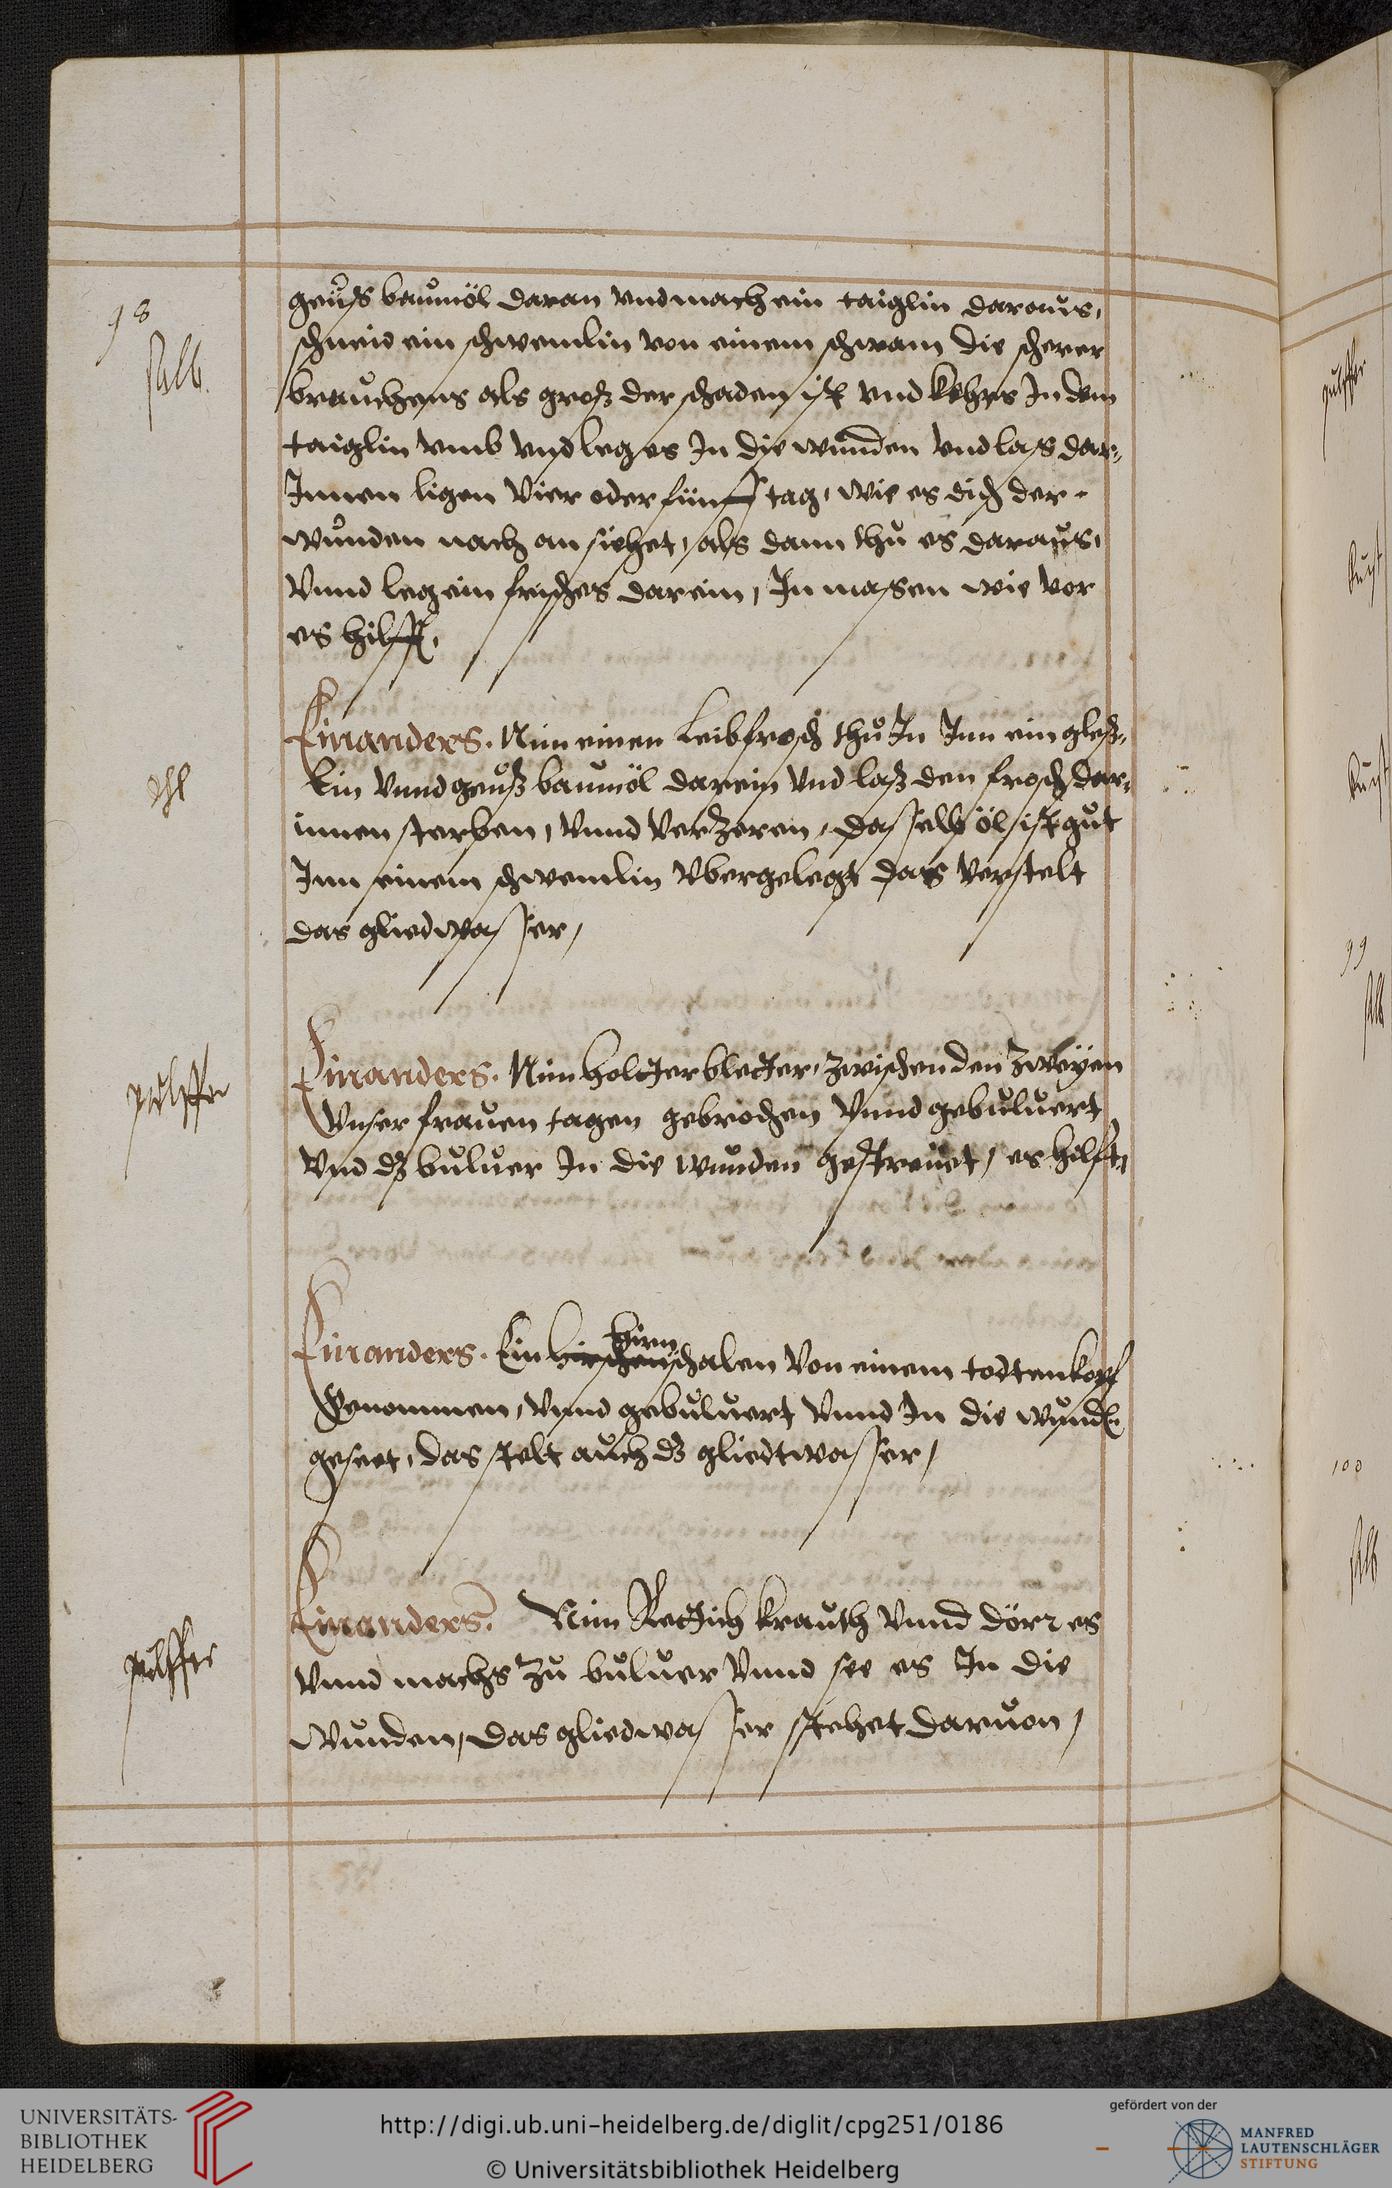 98
salb.
geuß baumöl daran vnd mach ein taiglin daraus,
schneid ein schwemlin von einem schwam die scherer
brauchens als groß der schaden ist vnd kehrs In dem
taiglin vmb vnd leg es In die wunden vnd lass dar-
Innen ligen vier oder fünff tag, wie es dich der
wunden nach an siehet, als dann thu es daraus,
Vnnd leg ein frisches darein, In massen wie vor
es hilfft,
öhl
Ein anders. Nim einen Leibfrosch thu In Inn ein gleß-
lin vnnd geuß baumöl darein vnd laß den frosch dar-
innen sterben, vnnd verzeren, das selb öl ist gut
Inn einem schwemlin Vbergelegt das verstelt
das gliedwasser,
pulffer
Ein anders. Nim holcterblecter, zwischen den zweyen
Vnser frauen tagen gebrochen vnnd gebuluert
vnd dz buluer In die wunden gestreuet, es hilfft,
Ein anders. Ein hirn schalen von einem todtenkopf
Genommen, vnnd gebuluert vnnd In die wunden
geseet, das stelt auch dz gliedtwasser,
pulffer
Ein anders. Nim Rectich krauth vnnd dörr es
vnnd machs zu buluer vnnd see es In die
wunden, das gliedwasser stehet daruon,
pulffer
99
salb
100
salb
UNIVERSITÄTS-
BIBLIOTHEK
HEIDELBERG
http://digi.ub.uni-heidelberg.de/diglit/cpg251/0186
© Universitätsbibliothek Heidelberg
gefördert von der
MANFRED
LAUTENSCHLÄGER
STIFTUNG